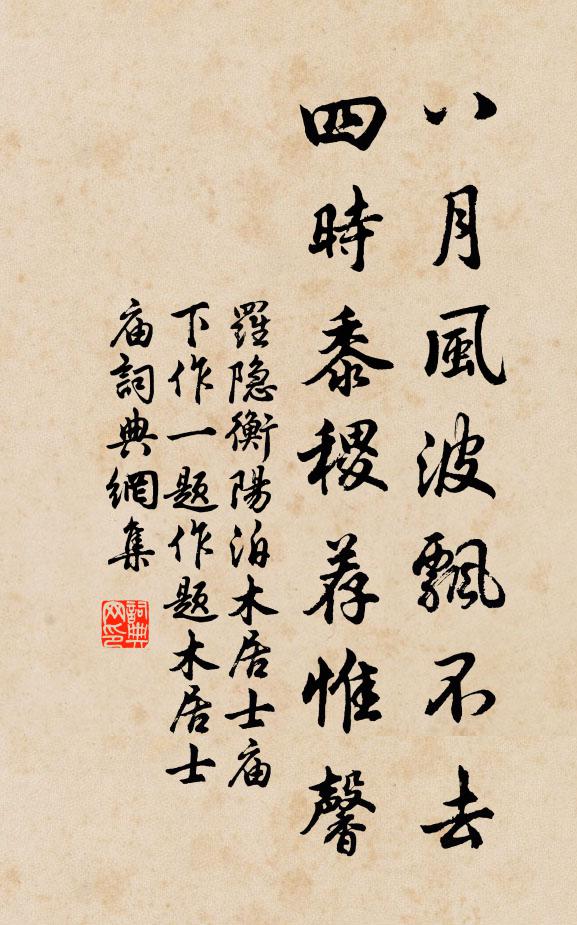 八月風波飄不去
四時黍稷荐惟馨
羅隐衡陽泊木居士庙
下作一题作题木居士
庙詞典網集
詞典网印